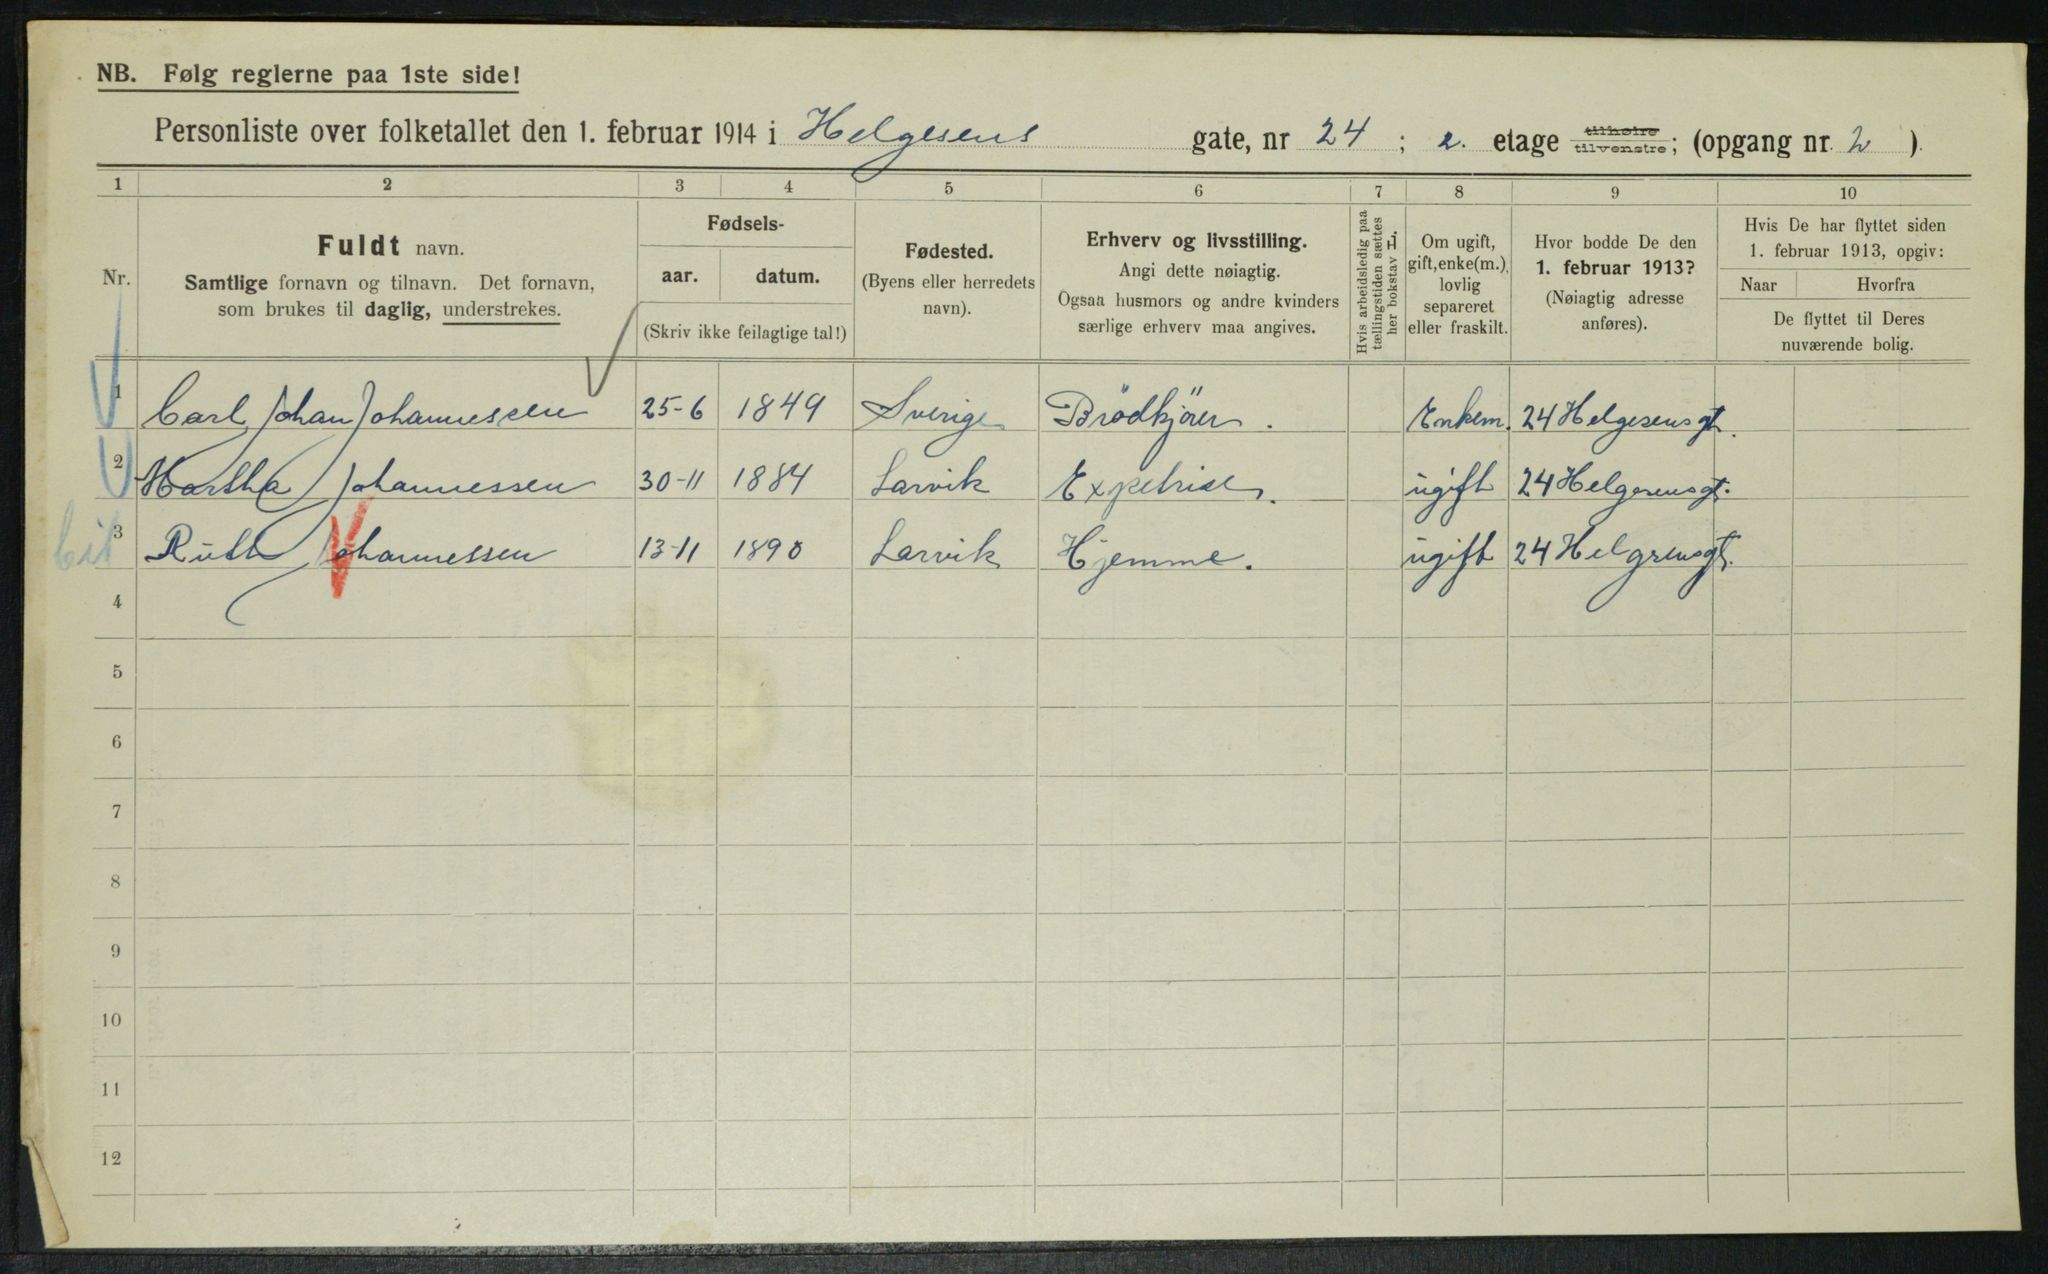 NB. Følg reglerne paa 1ste side!
Personliste over folketallet den 1. februar 1914 i Helgesens gate, nr 24 ; 2. etage tilhøire tilvenstre; (opgang nr. 2 ).
1 2 3 4 5 6 7 8 9 10
Nr.
Fuldt navn.
Samtlige fornavn og tilnavn. Det fornavn,
som brukes til daglig, understrekes.
Fødsels-
aar. datum.
(Skriv ikke feilagtige tal!)
Fødested.
(Byens eller herredets
navn).
Erhverv og livsstilling.
Angi dette nøiagtig.
Ogsaa husmors og andre kvinders
særlige erhverv maa angives.
Hvis arbeidsledig paa
tællingstiden sættes
her bokstav L.
Om ugift,
gift, enke(m.),
lovlig
separeret
eller fraskilt.
Hvor bodde De den
1. februar 1913?
(Nøiagtig adresse
anføres).
Hvis De har flyttet siden
1. februar 1913, opgiv:
Naar Hvorfra
De flyttet til Deres
nuværende bolig.
1 Carl Johan Johannessen 25-6 1849 Sverige Brödkjörer. Enkem. 24 Helgesensgt.
2 Martha Johannessen 30-11 1884 Larvik Expetrise. ugift 24 Helgesensgt.
3 Ruth Johannessen 13-11 1890 Larvik Hjemme. ugift 24 Helgesensgt.
4
5
6
7
8
9
10
11
12